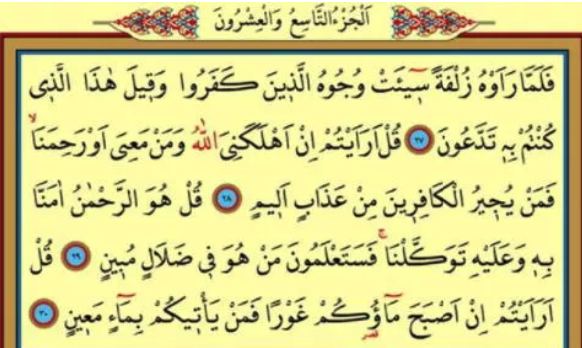 اَلْجُزْءُ التَّاسِعُ وَالْعِشْرُونَ
فَلَمَّا رَاَوْهُ زُلْفَةً سٖٓيـَٔتْ وُجُوهُ الَّذٖينَ كَفَرُوا وَقٖيلَ هٰذَا الَّذٖى
كُنْتُمْ بِهٖ تَدَّعُونَ ﴿٢٧﴾ قُلْ اَرَاَيْتُمْ اِنْ اَهْلَكَنِىَ اللّٰهُ وَمَنْ مَعِىَ اَوْ رَحِمَنَاۙ
فَمَنْ يُجٖيرُ الْكَافِرٖينَ مِنْ عَذَابٍ اَلٖيمٍ ﴿٢٨﴾ قُلْ هُوَ الرَّحْمٰنُ اٰمَنَّا
بِهٖ وَعَلَيْهِ تَوَكَّلْنَاۚ فَسَتَعْلَمُونَ مَنْ هُوَ فٖى ضَلَالٍ مُبٖينٍ ﴿٢٩﴾ قُلْ
اَرَاَيْتُمْ اِنْ اَصْبَحَ مَٓاؤُ۬كُمْ غَوْرًا فَمَنْ يَأْتٖيكُمْ بِمَٓاءٍ مَعٖينٍ ﴿٣٠﴾